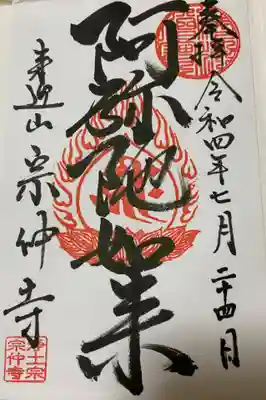 奉拝
令和四年七月二十四日
阿弥陀如来
来迎山 宗仲寺
浄土宗
宗仲寺